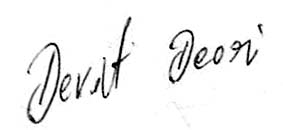 Devit Deori